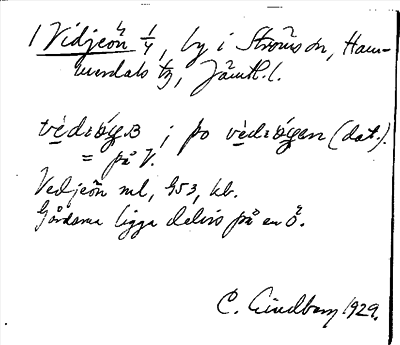 1 Vidjeön 1/4, by i Ströms sn, Ham-
merdals tg, Jämtl. l.
vèdıøɡɛn ; po vèdıøɡen (dat.).
= på V.
Vedjeön ml, 953, kb.
Gårdarna ligga delvis på en ö.
C. Lindberg 1929.